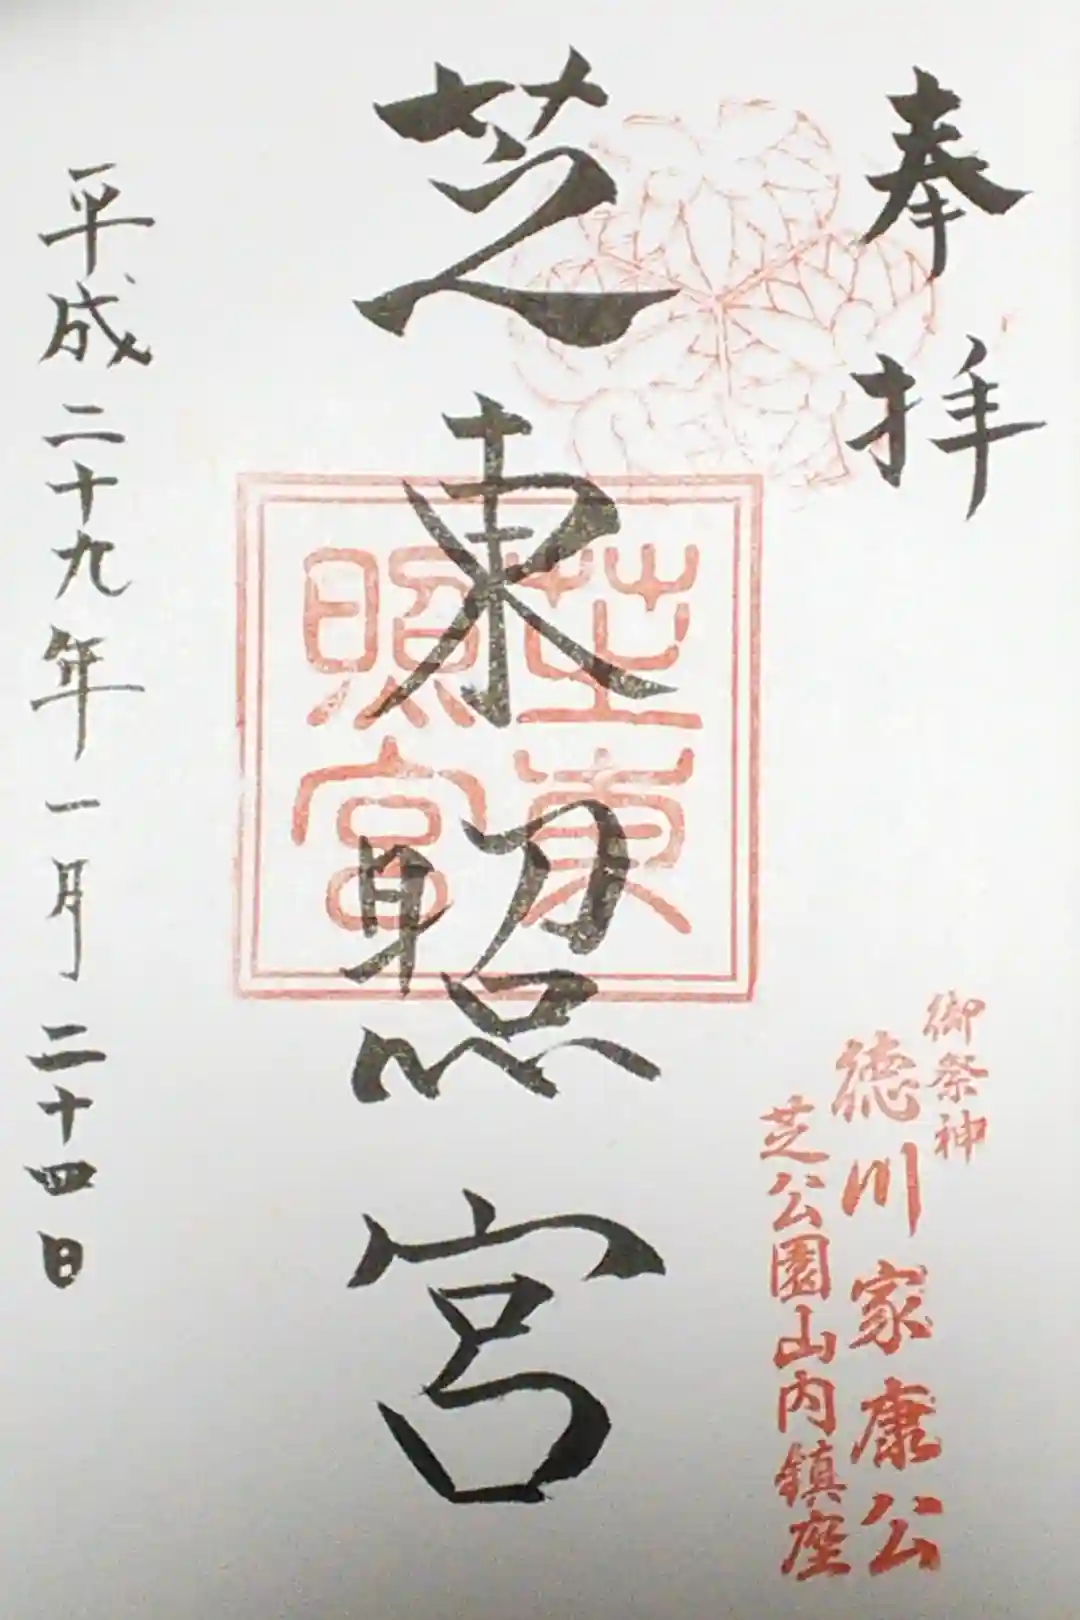 奉拝
御祭神
徳川家康公
芝公園山内鎮座
芝東照宮
芝東
照宮
平成二十九年一月二十四日